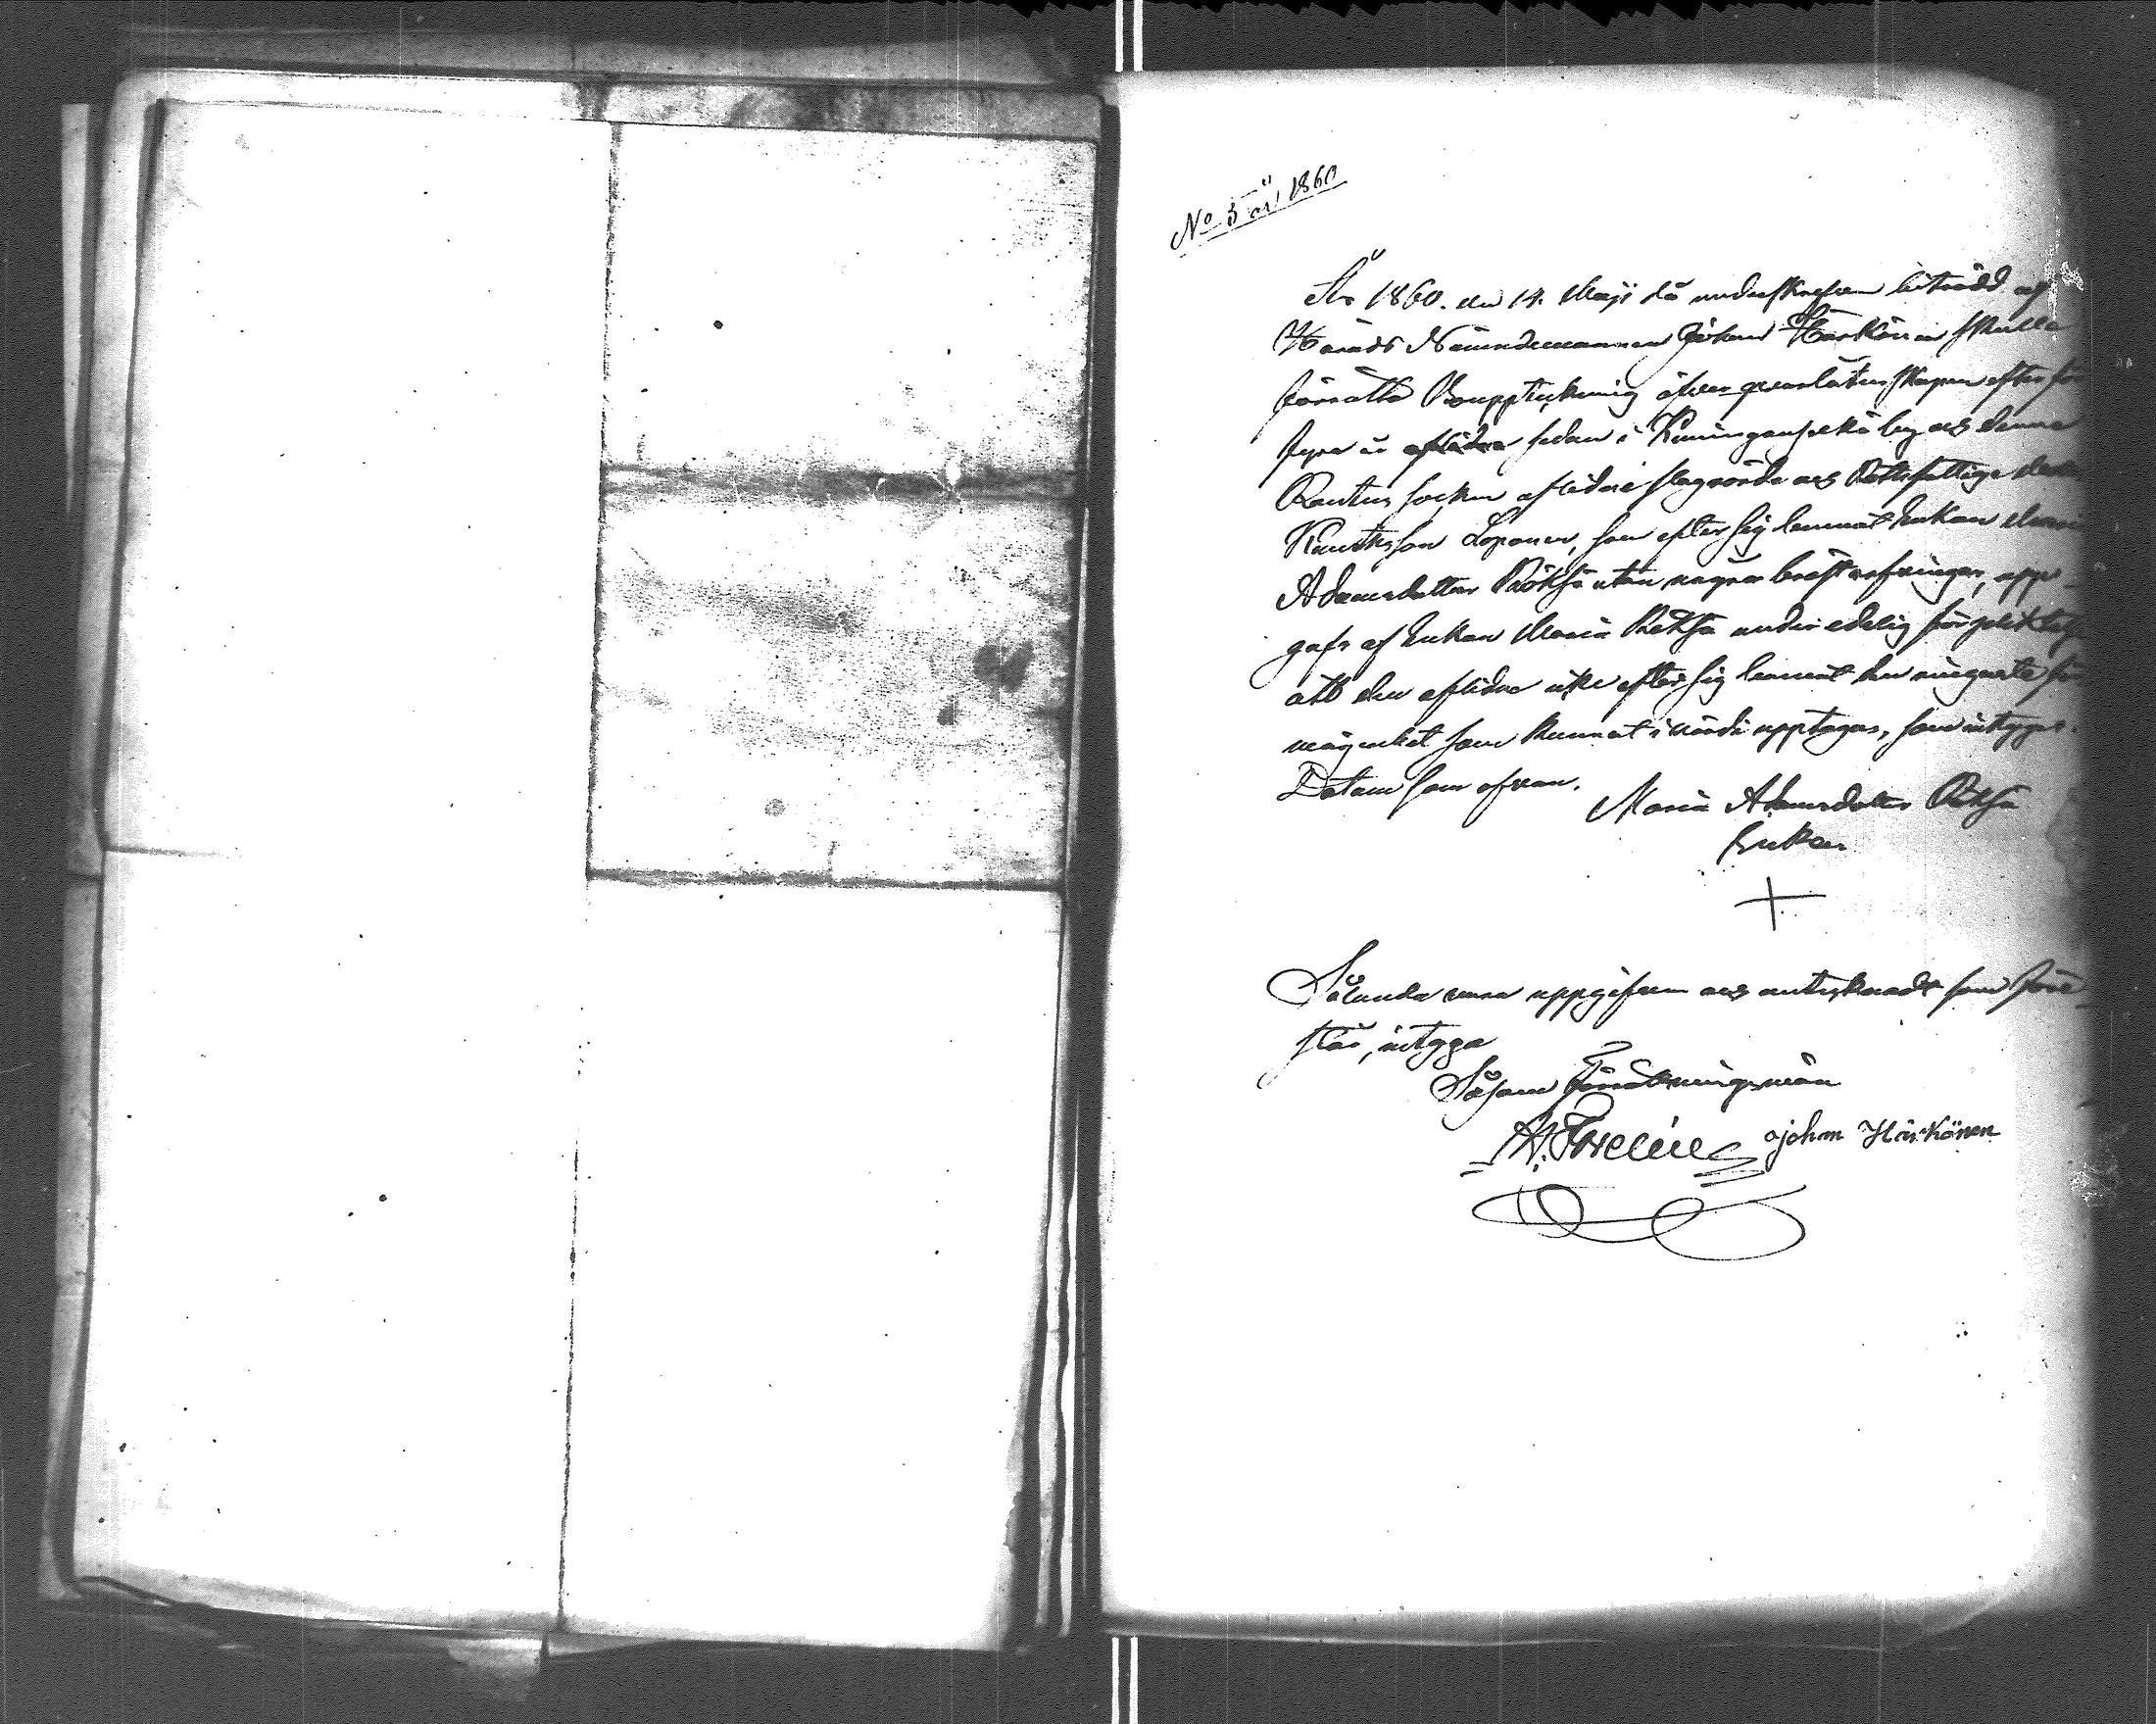 No 5 år 1860
År 1860. den 14. Maji då underskrefven biträdd af
Härads Nämndemannen Johan Härkönen skulle
förrätta Bouppteckning öfver qvarlåtenskapen efter för
fyra år sedan i Kuninganpekä by och denna
Rautus socken aflidne Lagvörde och Rättsfällige
Knutsson Loponen, som efter sig lemnat Enkan Maria
Adamsdotter Röksä utan några bröstarfvingar, upp-
gafs af Enkan Maria Röksä under edelig förpliktelse
att den aflidne icke efter sig lemnat den ringaste för
mögenhet som kunnat i värde upptagas, som intygas.
Datum som ofvan.
Maria Adamsdotter Röksä
Enka.
Sålunda vara uppgifven och antecknadt som före
står, intyga
Såsom Förrättningsmän
Johan Härkönen